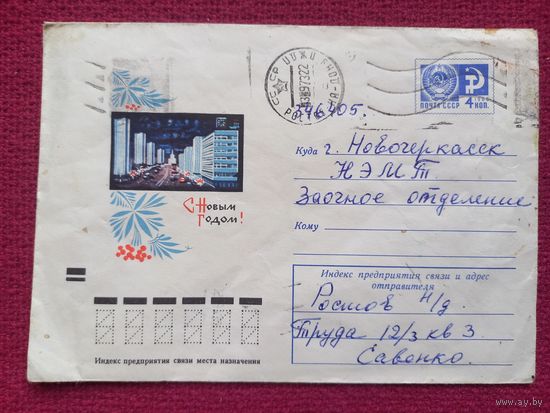 СССР
ПОЧТА СССР
4 КОП.
1966
346405.
Куда г. Новочеркасск
НЭМТ
Заочное отделение
Кому
С Новым
Годом!
Индекс предприятия связи и адрес
отправителя
Ростов н/д
Труда 12/3 кв 3
Савонко.
Индекс предприятия связи места назначения
www.ay.by